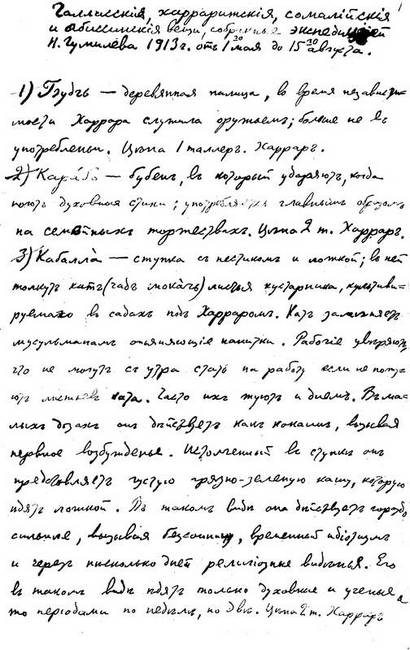 Галласскія, харраритскія, сомалійскія
и абиссинскія вещи, собранныя экспедиціей
Н. Гумилева 1913 г. отъ 1го мая до 15го августа.
1) Будъ — деревянная палица, во время независи-
мости Харрара служила оружіемъ; больше не въ
употребленіи. Цѣна 1 таллеръ. Харраръ.
2) — бубенъ, въ который ударяютъ, когда
поютъ духовные стихи; употребляютъ главнымъ образомъ
на семейныхъ торжествахъ. Цѣна 2 т. Харраръ.
3) Кабалла — ступка съ пестикомъ и ложкой; въ ней
толкутъ катъ листья кустарника, культиви-
руемаго въ садахъ подъ Харраромъ. Катъ замѣняетъ
мусульманамъ опьяняющіе напитки. Рабочіе увѣряютъ,
что не могутъ съ утра стать на работу если не пожу-
ютъ листьевъ ката. Часто ихъ жуютъ и днемъ. Въ ма-
лыхъ дозахъ онъ дѣйствуетъ какъ кокаинъ, вызывая
нервное возбужденье. Истолченный въ ступкѣ онъ
представляетъ густую грязно-зеленую кашу, которую
ѣдятъ ложкой. Въ такомъ видѣ она дѣйствуетъ гораздо
сильнѣе, вызывая безсонницу, временный идіотизмъ
и черезъ нѣсколько дней религіозныя видѣнья. Его
въ такомъ видѣ ѣдятъ только духовные и ученые и
то періодами по недѣлѣ, по двѣ. Цѣна 2 т. Харраръ